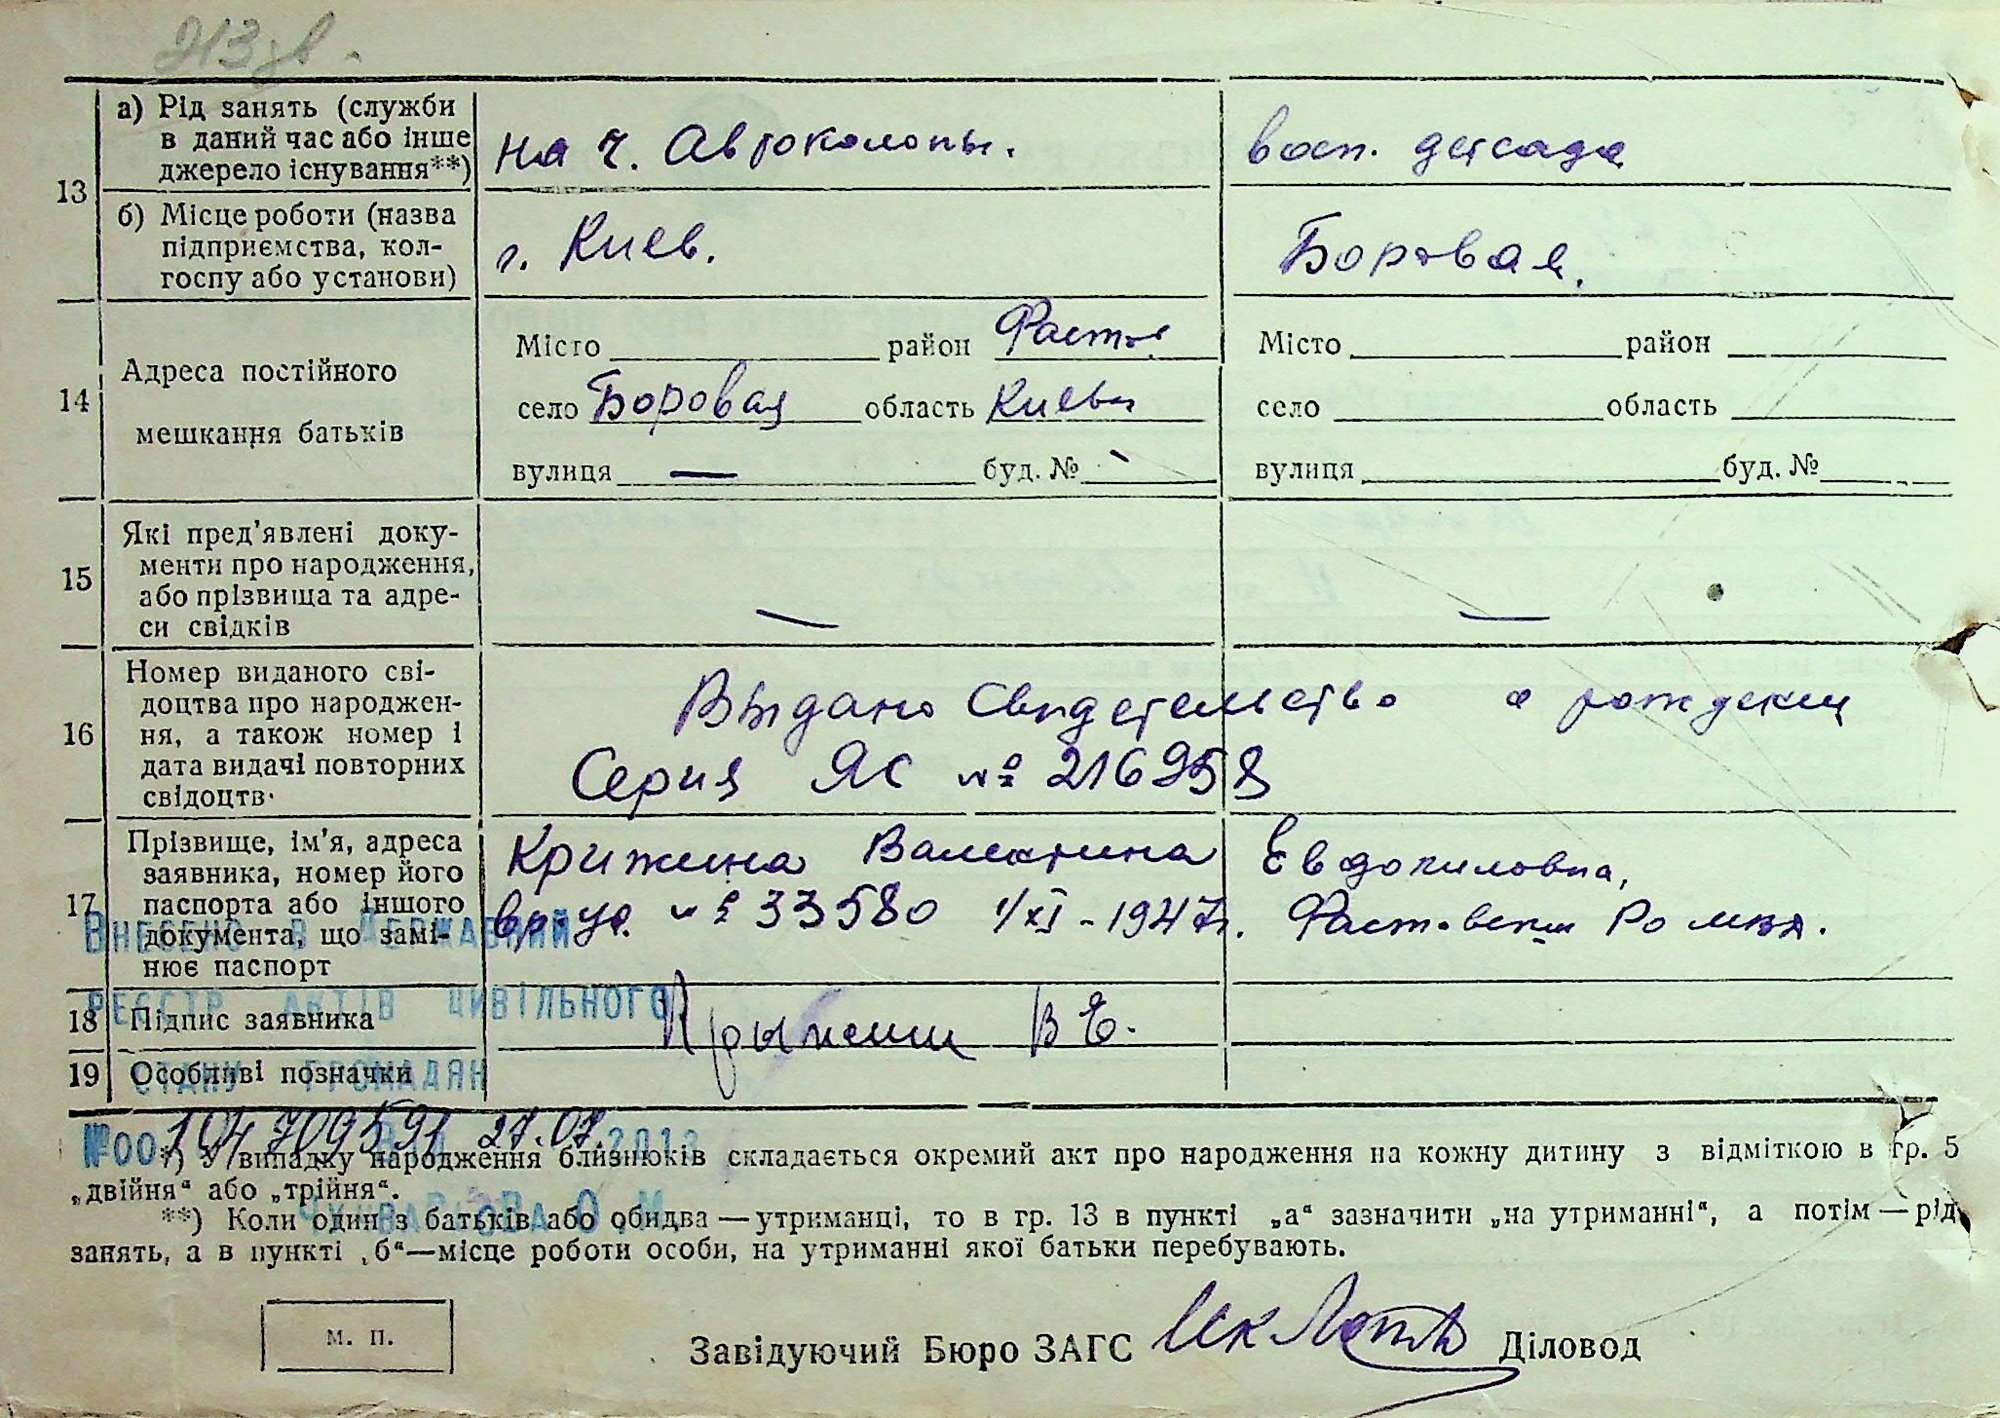 213 зв.
а) Рід занять (служби
в даний час або інше
джерело існування**)
на ч. Автоколоны.
восп. детсада
13
б) Місце роботи (назва
підприємства, кол-
госпу або установи)
г. Киев.
Боровая.
Місто район Фастов
Місто район
14
Адреса постійного
мешкання батьків
село Боровая область Киевск
село область
вулиця — буд. № -
вулиця буд. №
15
Які пред'явлені доку-
менти про народження,
або прізвища та адре-
си свідків
—
—
16
Номер виданого сві-
доцтва про народжен-
ня, а також номер і
дата видачі повторних
свідоцтв.
Выдано Свидетельство о рождении
Серия ЯС № 216958
17
Прізвище, ім'я, адреса
заявника, номер його
паспорта або іншого
документа, що замі-
нює паспорт
Крижина Валентина Евдокимовна,
вр. уд. № 33580 1/XI - 1947г. Фастовским РО МВД.
18 Підпис заявника
В Е.
19 Особливі позначки
Внесено в Державний
реєстр актів цивільного
стану громадян
№00104709591 від 27.07.2013
О М
*) У випадку народження близнюків складається окремий акт про народження на кожну дитину з відміткою в гр. 5
„двійня“ або „трійня“.
**) Коли один з батьків або обидва — утриманці, то в гр. 13 в пункті „а“ зазначити „на утриманні“, а потім — рід
занять, а в пункті „б“—місце роботи особи, на утриманні якої батьки перебувають.
м. п.
Завідуючий Бюро ЗАГС Діловод